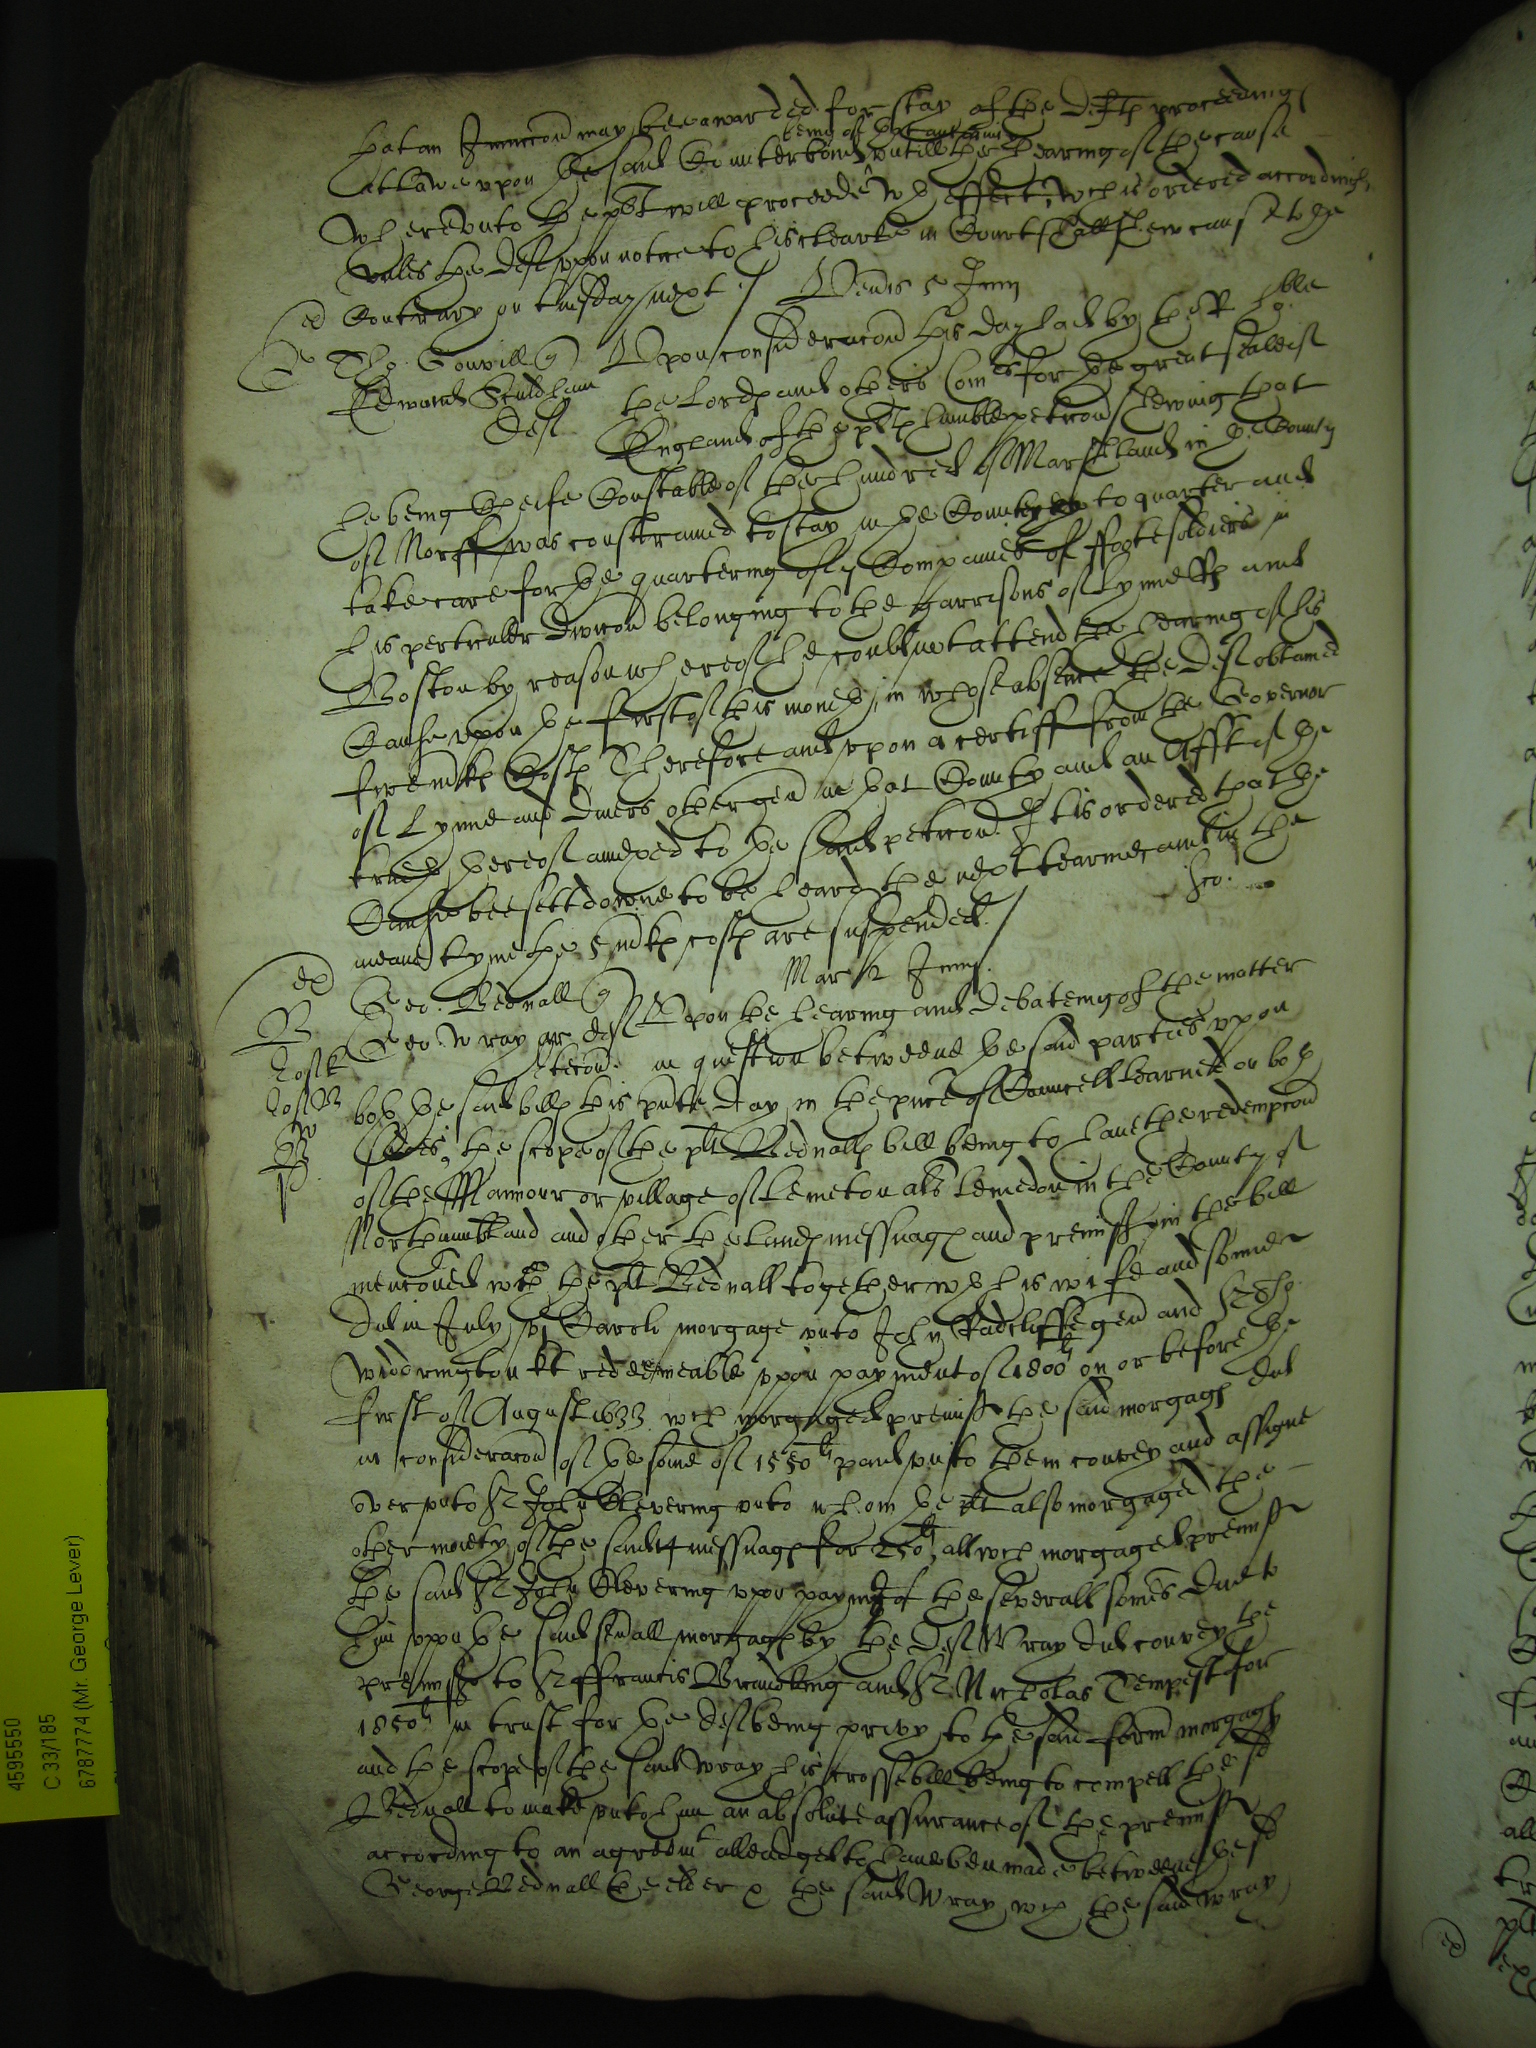 that an Iniuncc̃on may bee awarded for stay of the Deftȝ proceedings
att lawe vpon the said Counterbond being of the
vntill the hearing of the cause
Wherevnto the plt will proceede wth effect, wch is ordered accordingly
vnles the Deft vpon notice to his clearke in Court shall shew cause to the
Contrary on tuesday next /
Veñis 5 Junij
ex
Tho: Gonvill q̃
Edward Stuldham
Deft
Vpon considerac̃on this day had by the Rt hoble
the Lordȝ and others Comrs for the great seale of
England of the pltȝ humble petic̃on shewing that
he being Cheife Constable of the hundred of Marshland in the County
of Norff was constrained to stay in the Country to quarter and
take care for the quartering of Companies of ffoote soldiers in
his perticuler divic̃on belonging to the Garrisons of Lynne and
Boston by reason whereof he could not attend the hearing of his
Cause vpon the first of this moneth, in whose absence the Deft obtained
five mkȝ Costȝ Therefore and vpon a certiff from the Governor
of Lynne and divers other gen in that County and an Affid of the
truth thereof annexed to the said petic̃on. It is ordered that the
Cause bee sett downe to be heard the next tearme, and in the
meane tyme the 5 mkȝ costȝ are suspended. /
Mar 2 Junij.
ex
Geo. Rednall q̃
Geo. Wray ar Deft
et econ.
Vpon the hearing and debateing of the matter
in question betweene the said parties vpon
both the said billȝ this pñte day in the pñce of Councell learned on both
sides, the scope of the plt Rednallȝ bill being to have the redempc̃on
of the Mannour or village of Lemeton als Lemedon in the County of
Northumbland and other the landȝ messuagȝ and premissȝ in the bill
menc̃oned wch the plt Rednall together wth his wife and
did in July Caroli morgage vnto John Radcliffe gen and Sr Tho:
Widdrington kt redeemeable vpon payment of 1800li on or before the
first of August 1633 wch morgaged premissȝ the said morgagȝ did
in considerac̃on of the some of 1550li paid vnto them convey and assigne
over vnto Sr John Clevering vnto whom the plt also morgaged the
other moiety of the said 4 messuagȝ for 250li, all wch morgaged premissȝ
the said Sr John Clevering vpon paymt of the severall somes due to
him vpon the said severall morgagȝ by the Deft Wray did convey the
premissȝ to Sr ffrancis Brandling and Sr Nicholas Tempest for
1850li in trust for the Deft being privy to the said form̃ morgagȝ
and the scope of the said Wray his crosse bill being to compell the sd
Rednall to make vnto him an absolute assurance of the premissȝ
according to an agreemt alleadged to have been made betweene the sd
George Rednall the elder & the said Wray wch the said Wray
4595550
C 33/185
6787774 (Mr. George Lever)